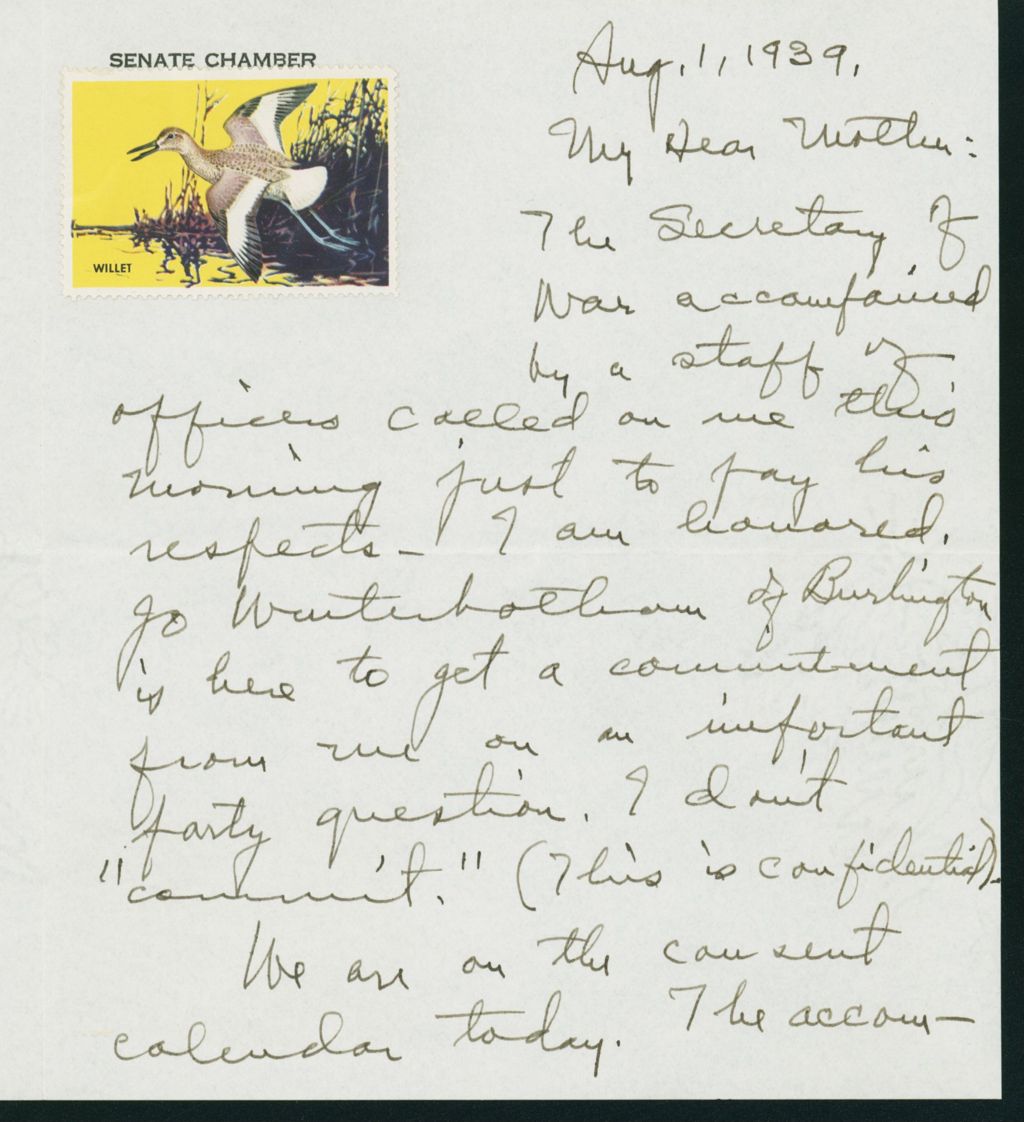 SENATE CHAMBER
WILLET
Aug. 1, 1939.
My Dear Mother:
The Secretary of
War accompanied
by a staff of
officers called on me this
morning just to pay his
respects — I am honored.
Jo Winterbotham of Burlington
is here to get a commitment
from me on an important
party question. I don't
"commit." (This is confidential).
We are on the consent
calendar today. The accom-